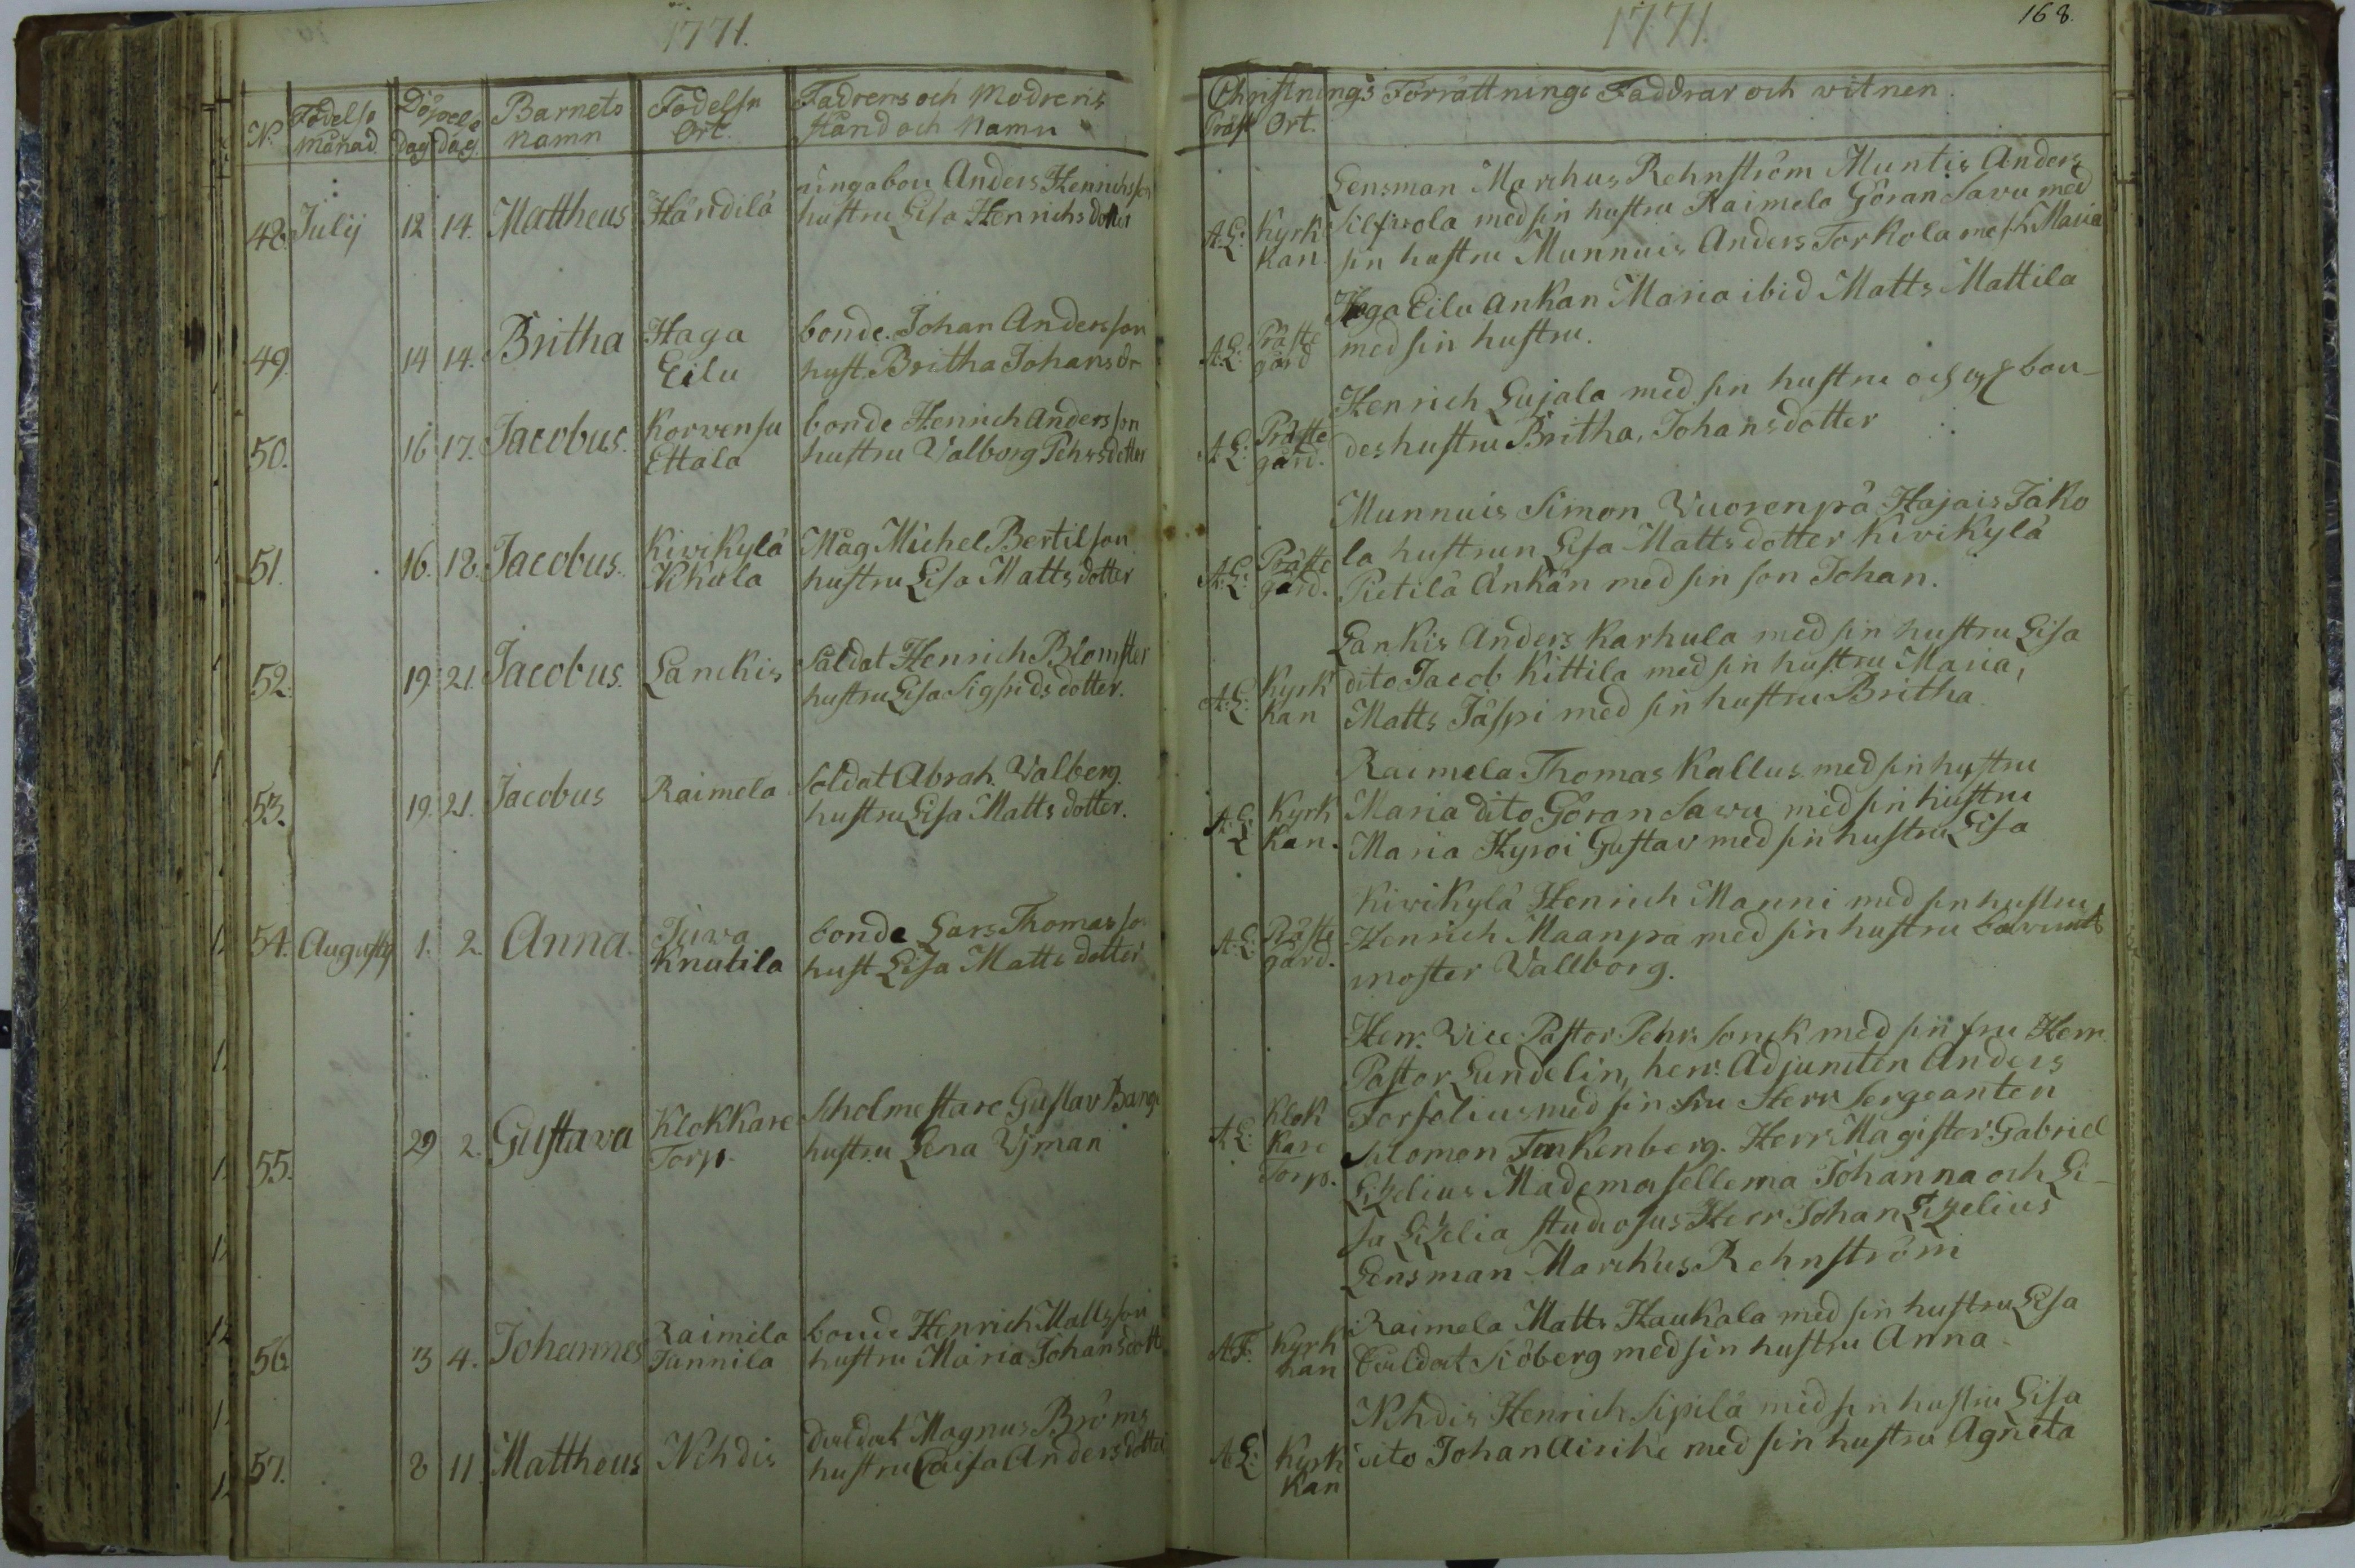 1771.
N. Födelse månad Döpels dag dag Barnets namn Födelse Ort. Fadrens och Modrens Stånd och Namn
48. Julij 12 14. Mattheus Händilä ungabon Anders Henrichsson
hustru Lisa Henrichsdotter
49. 14 14. Britha Haga bonde Johan Andersson
Eilu hust. Britha Johansdr
50. 16 17. Jacobus. Korvensu bonde Henrich Andersson
Ettala hustru Valborg Pehrsdotter
51. 16. 18. Jacobus. Kivikylä Måg Michel Bertilson
hustru Lisa Mattsdotter
52. 19. 21. Jacobus. Lanckis Saldat Henrich Blomster
hustru Lisa Sigfridsdotter.
53. 19. 21. Jacobus Raimela Soldat Abrah. Valberg.
hustru Lisa Mattsdotter.
54. Augusty 1. 2. Anna. Juva bonde Lars Thomasson
Knutila hust Lisa Mattsdotter
55. 29 2. Gustava Klokkare Scholmestare Gustav Bange
Torp. hustru Lena Wiman
56. 3 4. Johannes Raimela bonde Henrich Mattsson
Junnila hustru Maria Johansdott
57. 8 11. Mattheus Nehdis Magnus Bröms
hustru Caisa Andersdotter
1771.
168.
Christnings Förrättnings Faddrar och vitnen.
Präst Ort.
Lensman Marchus Rehnström Muntis Anders
A:L: Kyrk med sin hustru Raimela Göran Savu med
kan sin hustru Munnuis Anders Torkola Maria
Haga Eilu ankan Maria ibid Matts Mattila
A:L: Präste gård med sin hustru.
Henrich Lujala med sin hustru och bon-
A:L: Präste gård. des hustru Britha, Johansdotter
Munnuis Simon Vuorenpä Hajais Jako
A:L: Präste la hustrun Lisa Mattsdotter Kivikylä
gård. Pietilä Änkan med sin son Johan.
Lankis Anders Karhula med sin hustru Lisa
A:L: Kyrk dito Jacob Kittila med sin hustru Maria,
kan Matts Jäspi med sin hustru Britha
Raimela Thomas Kallus med sin hustru
A:L: Kyrk Maria dito Göran Savu med sin hustru
kan. Maria Hyroi Gustav med sin hustru Lisa
Kivikylä Henrich Manni med sin hustru
A:L: Präste Henrich Maanpä med sin hustru
gård. moster Vallborg.
Herr. Vice Pastor Pehr Sonck med sin fru Herr
Pastor Lundelin, herr Adjuncten Anders
A:L: Klok Forselius med sin fru Herr Sergeanten
kare Salomon Finkenberg. Herr Magister Gabriel
Torp. Lizelius Mademosellerna Johanna och Li-
sa Lizelia studiosus Herr Johan Lizelius
Lensman Marchus Rehnström
Raimela Matts Kaukala med sin hustru Lisa
A:F. Kyrk
kan Siöberg med sin hustru Anna
Nehdis Henrich Sipilä med sin hustru Lisa
A:L: Kyrk dito Johan Airike med sin hustru Agneta
kan